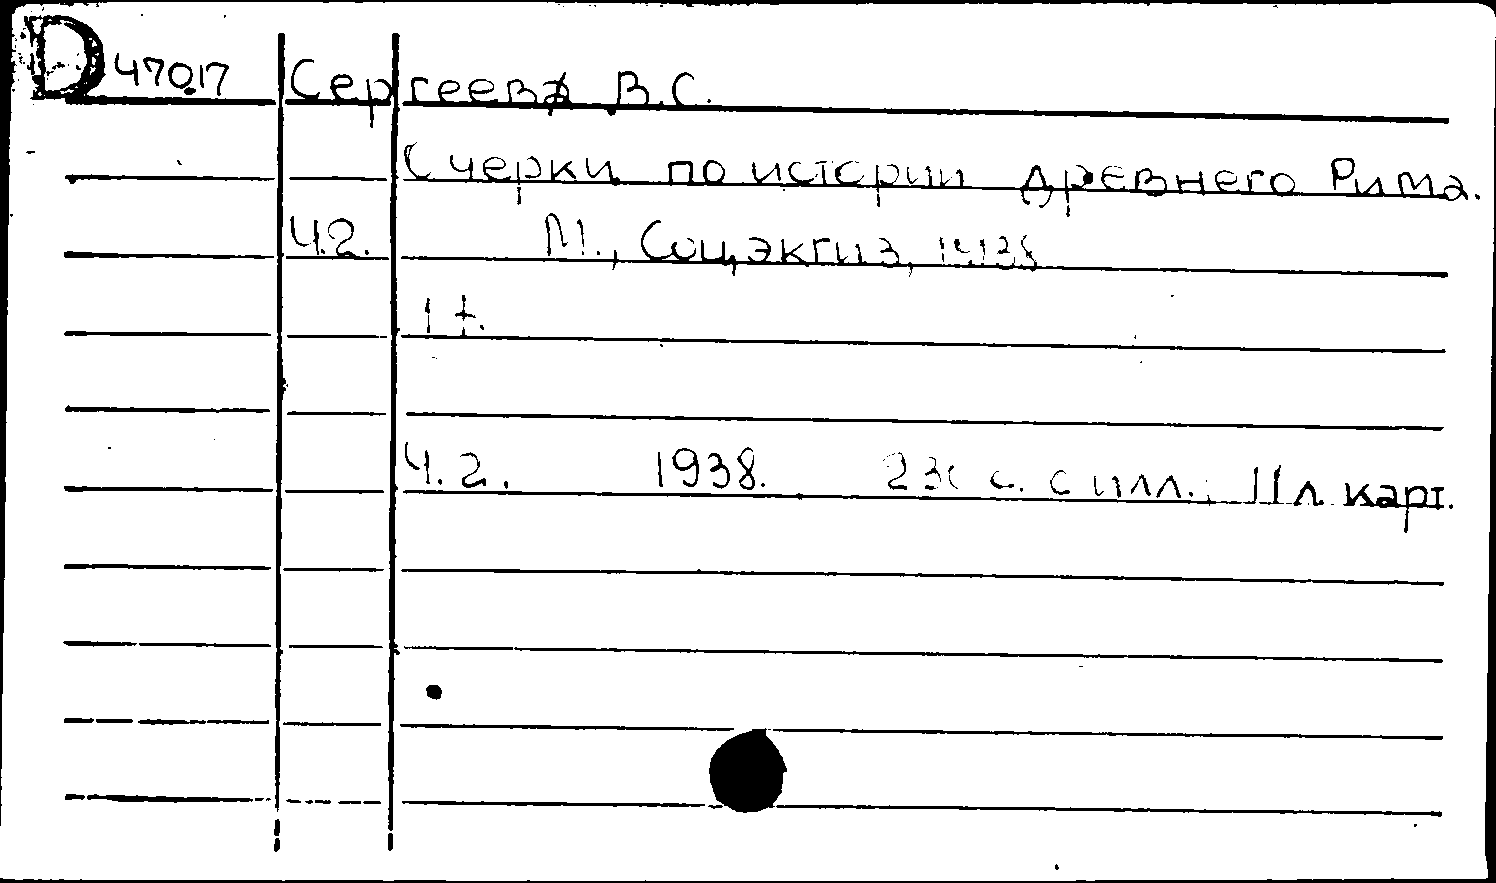 D 47017 Сергеев В.С.
Очерки по истории древнего Рима.
Ч.2. М., Соцэкгиз, 1938
1 т.
Ч. 2. 1938. с. с илл., 11 л карт.